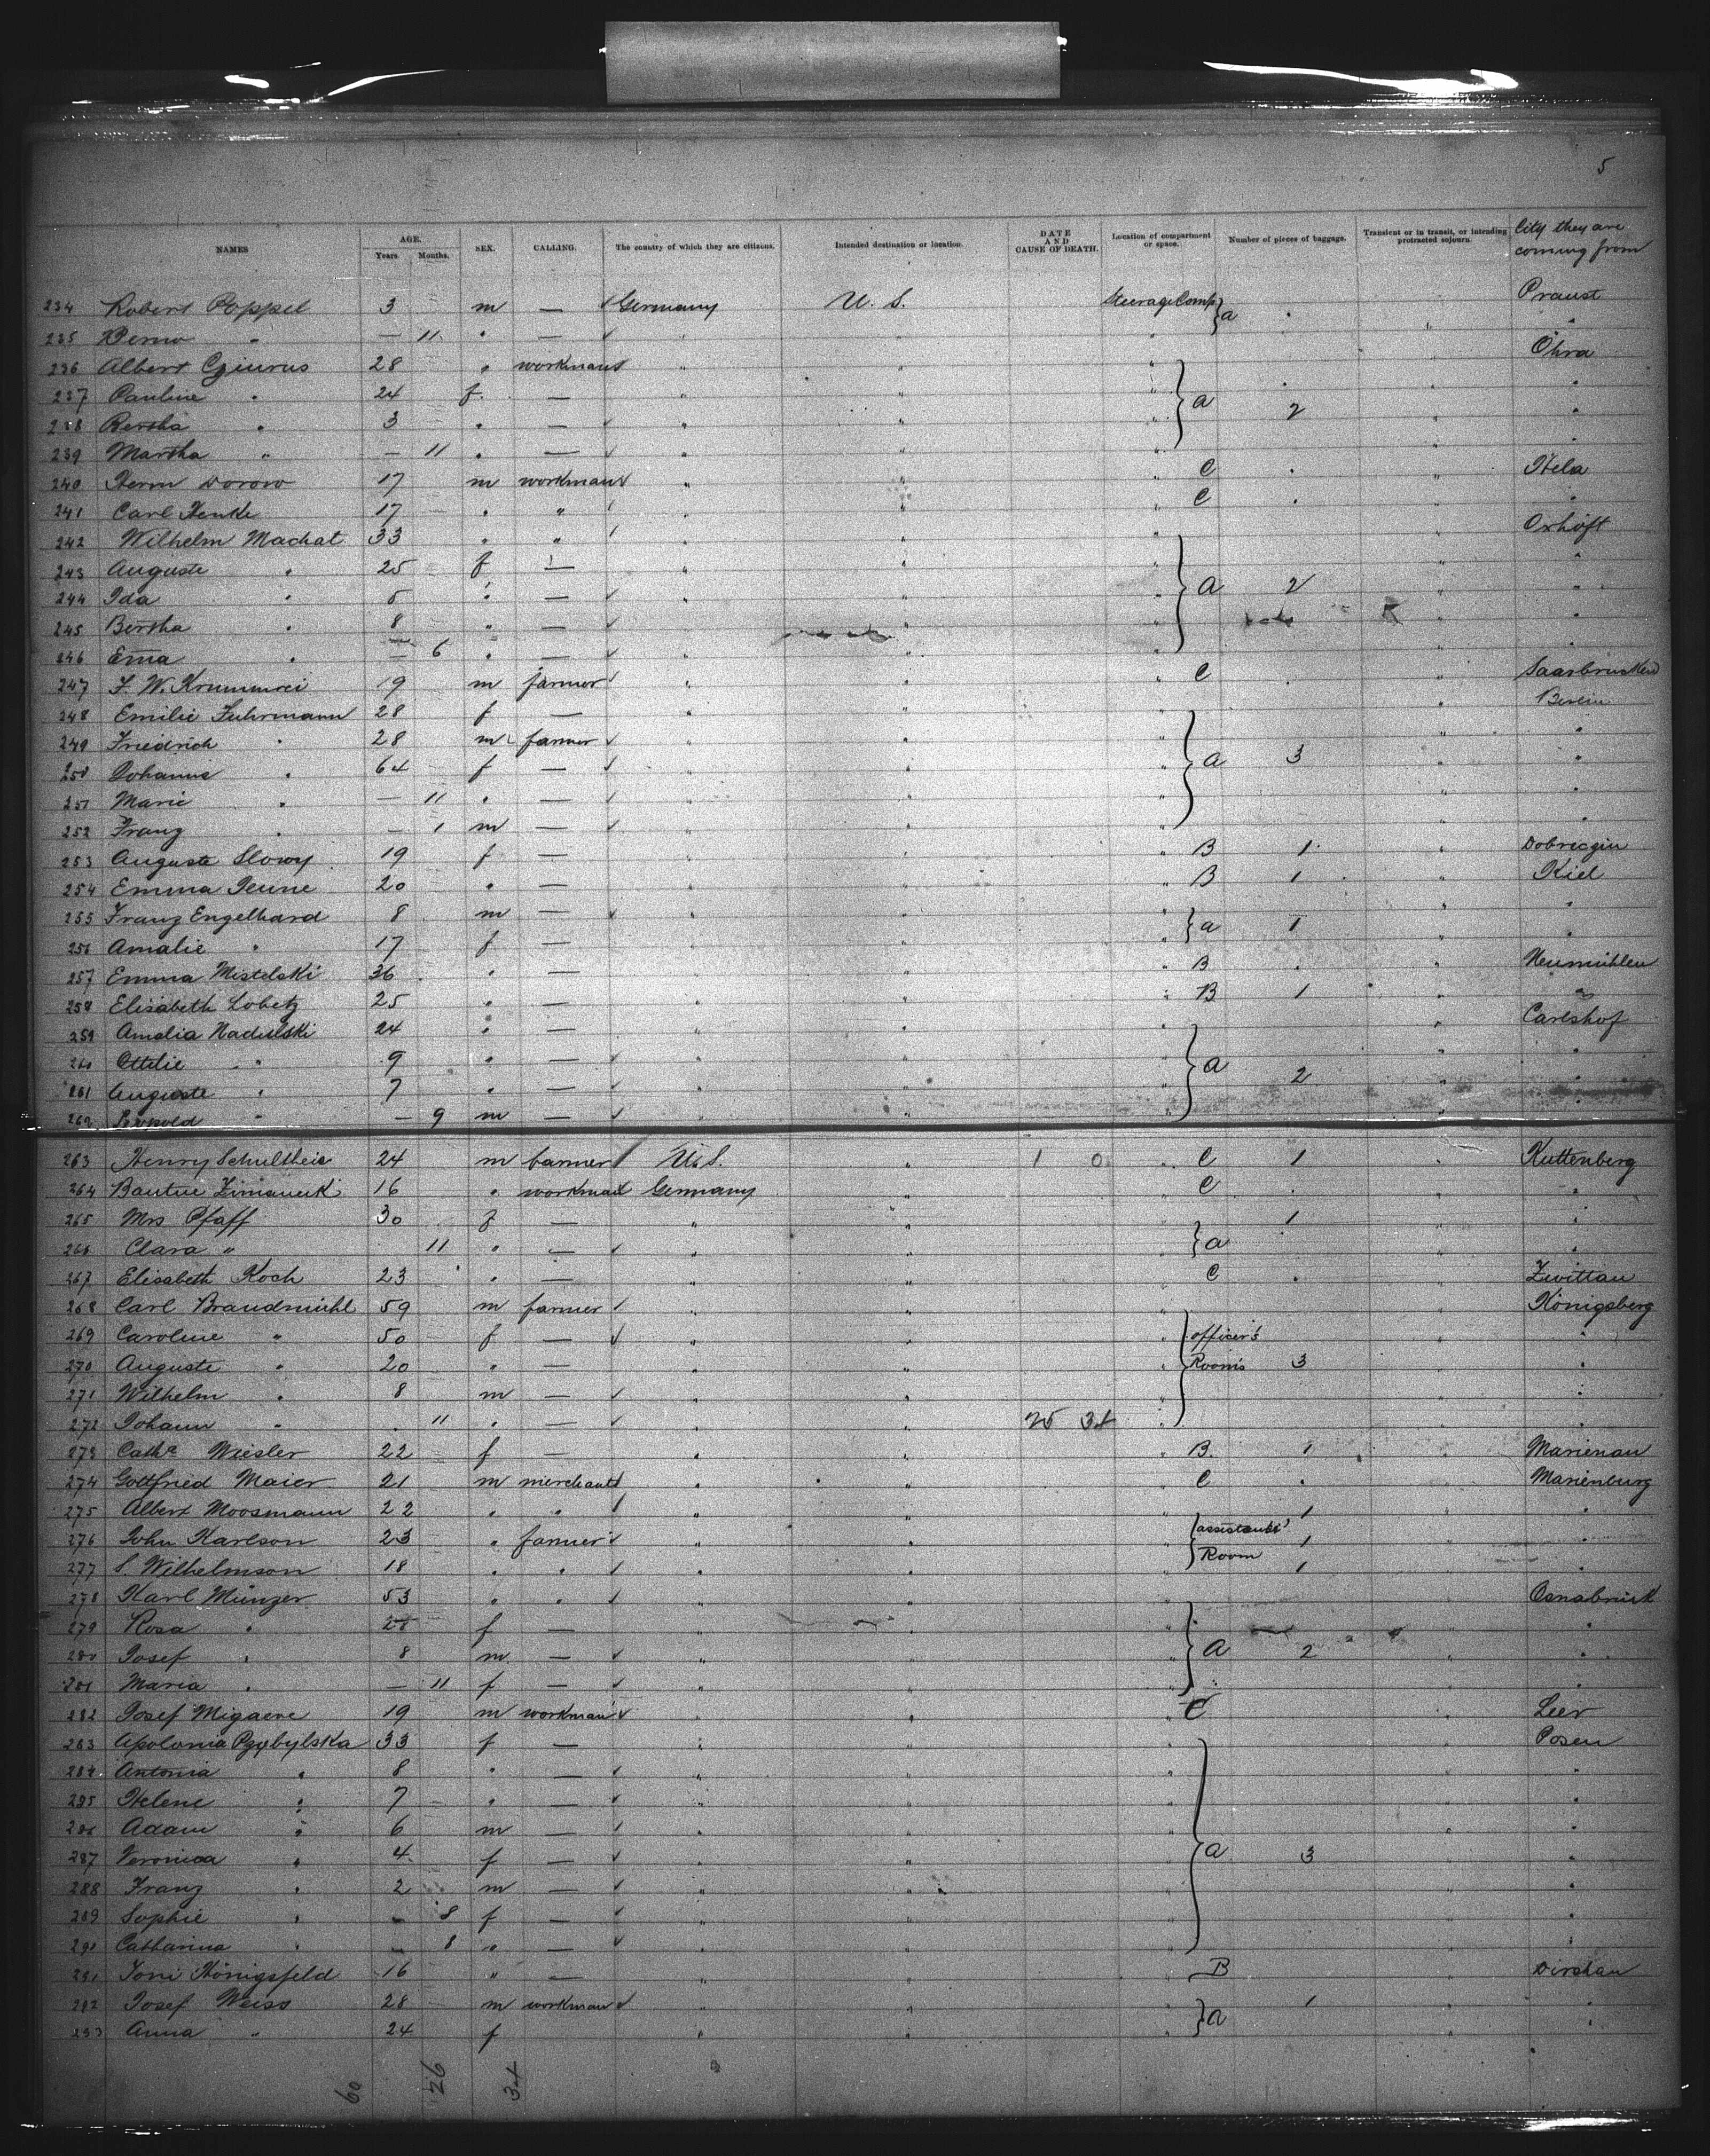 5
NAMES AGE. Years Months. SEX. CALLING. The country of which they are citizens. Intended destination or location. DATE AND CAUSE OF DEATH. Location of compartment or space. Number of pieces of baggage. Transient or in transit, or intending protracted sojourn. City they are coming from
234 Robert Poppel 3 m — Germany U. S. Steerage Comp a Praust
235 " — 11 " — " "
236 Albert 28 " workman " " Ohra
237 Pauline " 24 f — " " "
238 Bertha " 3 " — " " a 2 "
239 Martha " — 11 " — " " "
240 Herm Dorow 17 m workman " " C Hela
241 Carl Henke 17 " " " " C "
242 Wilhelm Machat 33 " " " " Oxhöft
243 Auguste " 25 f — " " "
244 Ida " 5 " — " " A 2 "
245 Bertha " 8 " — " " "
246 Ema " — 6 " — " " "
247 F. W. Krummrei 19 m farmer " " C Saarbrücken
248 Emilie Fuhrmann 28 f — " " Berlin
249 Friedrich " 28 m farmer " " "
250 " 64 f — " " a 3 "
251 Marie " — 11 " — " " "
252 Franz " — 1 m — " " "
253 Auguste Slowy 19 f — " " B 1
254 Emma 20 " — " " B 1 Kiel
255 Franz Engelhard 8 m — " " "
256 Amalie " 17 f — " " a 1 "
257 Emma Mistelski 36 " — " " B Neumühlen
258 Elisabeth Lobetz 25 " — " " B 1 "
259 Amalia Nadulski 24 " — " " Carlshof
260 Ottilie " 9 " — " " a "
261 Auguste " 7 " — " " 2 "
262 Leopold " — 9 m — " "
263 Henry Schultheis 24 m farmer U.S. " 1 0 C 1 Kuttenberg
264 16 " workman Germany " C "
265 Mrs Pfaff 30 f — " " 1 "
266 Clara " 11 " — " " a "
267 Elisabeth Koch 23 " — " " C Zwittau
268 Carl Brandmühl 59 m farmer " " Königsberg
269 Caroline " 50 f — " " officer's "
270 Auguste " 20 " — " " Rooms 3 "
271 Wilhelm " 8 m — " " "
272 Johann " 11 " — " " 25 34 "
273 Cath.a Wiesler 22 f — " " B 1 Marienau
274 Gottfried Maier 21 m merchant " " C Marienburg
275 Albert Moosmann 22 " " " " 1 "
276 John Karlson 23 " farmer " " assistants' 1 "
277 S. Wilhelmson 18 " " " " Room 1
278 Karl Münzer 53 " " " " Osnabrück
279 Rosa " f — " " "
280 Josef " 8 m — " " A 2 "
281 Maria " — 11 f — " " "
282 Josef 19 m workman " " C Leer
283 Apolonia Pzybylska 33 f — " " Posen
284 Antonia " 8 " — " " "
285 Helene " 7 " — " " "
286 Adam " 6 m — " " "
287 Veronica " 4 f — " " a 3 "
288 Franz " 2 m — " " "
289 Sophie " — 8 f — " " "
290 Catharina " — 8 " — " " "
291 Toni Königsfeld 16 " — " " B Dirschau
292 Josef Weiss 28 m workman " " 1 "
293 Anna " 24 f " " a "
60 26 34